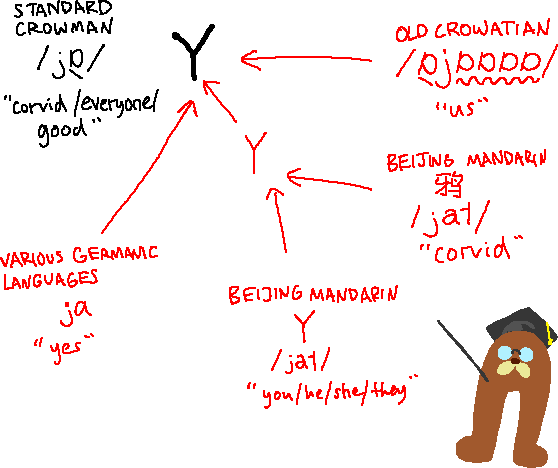 STANDARD
CROWMAN
/jɒ̯/
"corvid/everyone/
good"
Y
OLD CROWATIAN
/ɒ̯jɒ̰ɒ̰ɒ̰ɒ̰/
"us"
Y
BEIJING MANDARIN
鸦
/ja˥/
"corvid"
VARIOUS GERMANIC
LANGUAGES
ja
"yes"
BEIJING MANDARIN
丫
/ja˥/
"you/he/she/they"